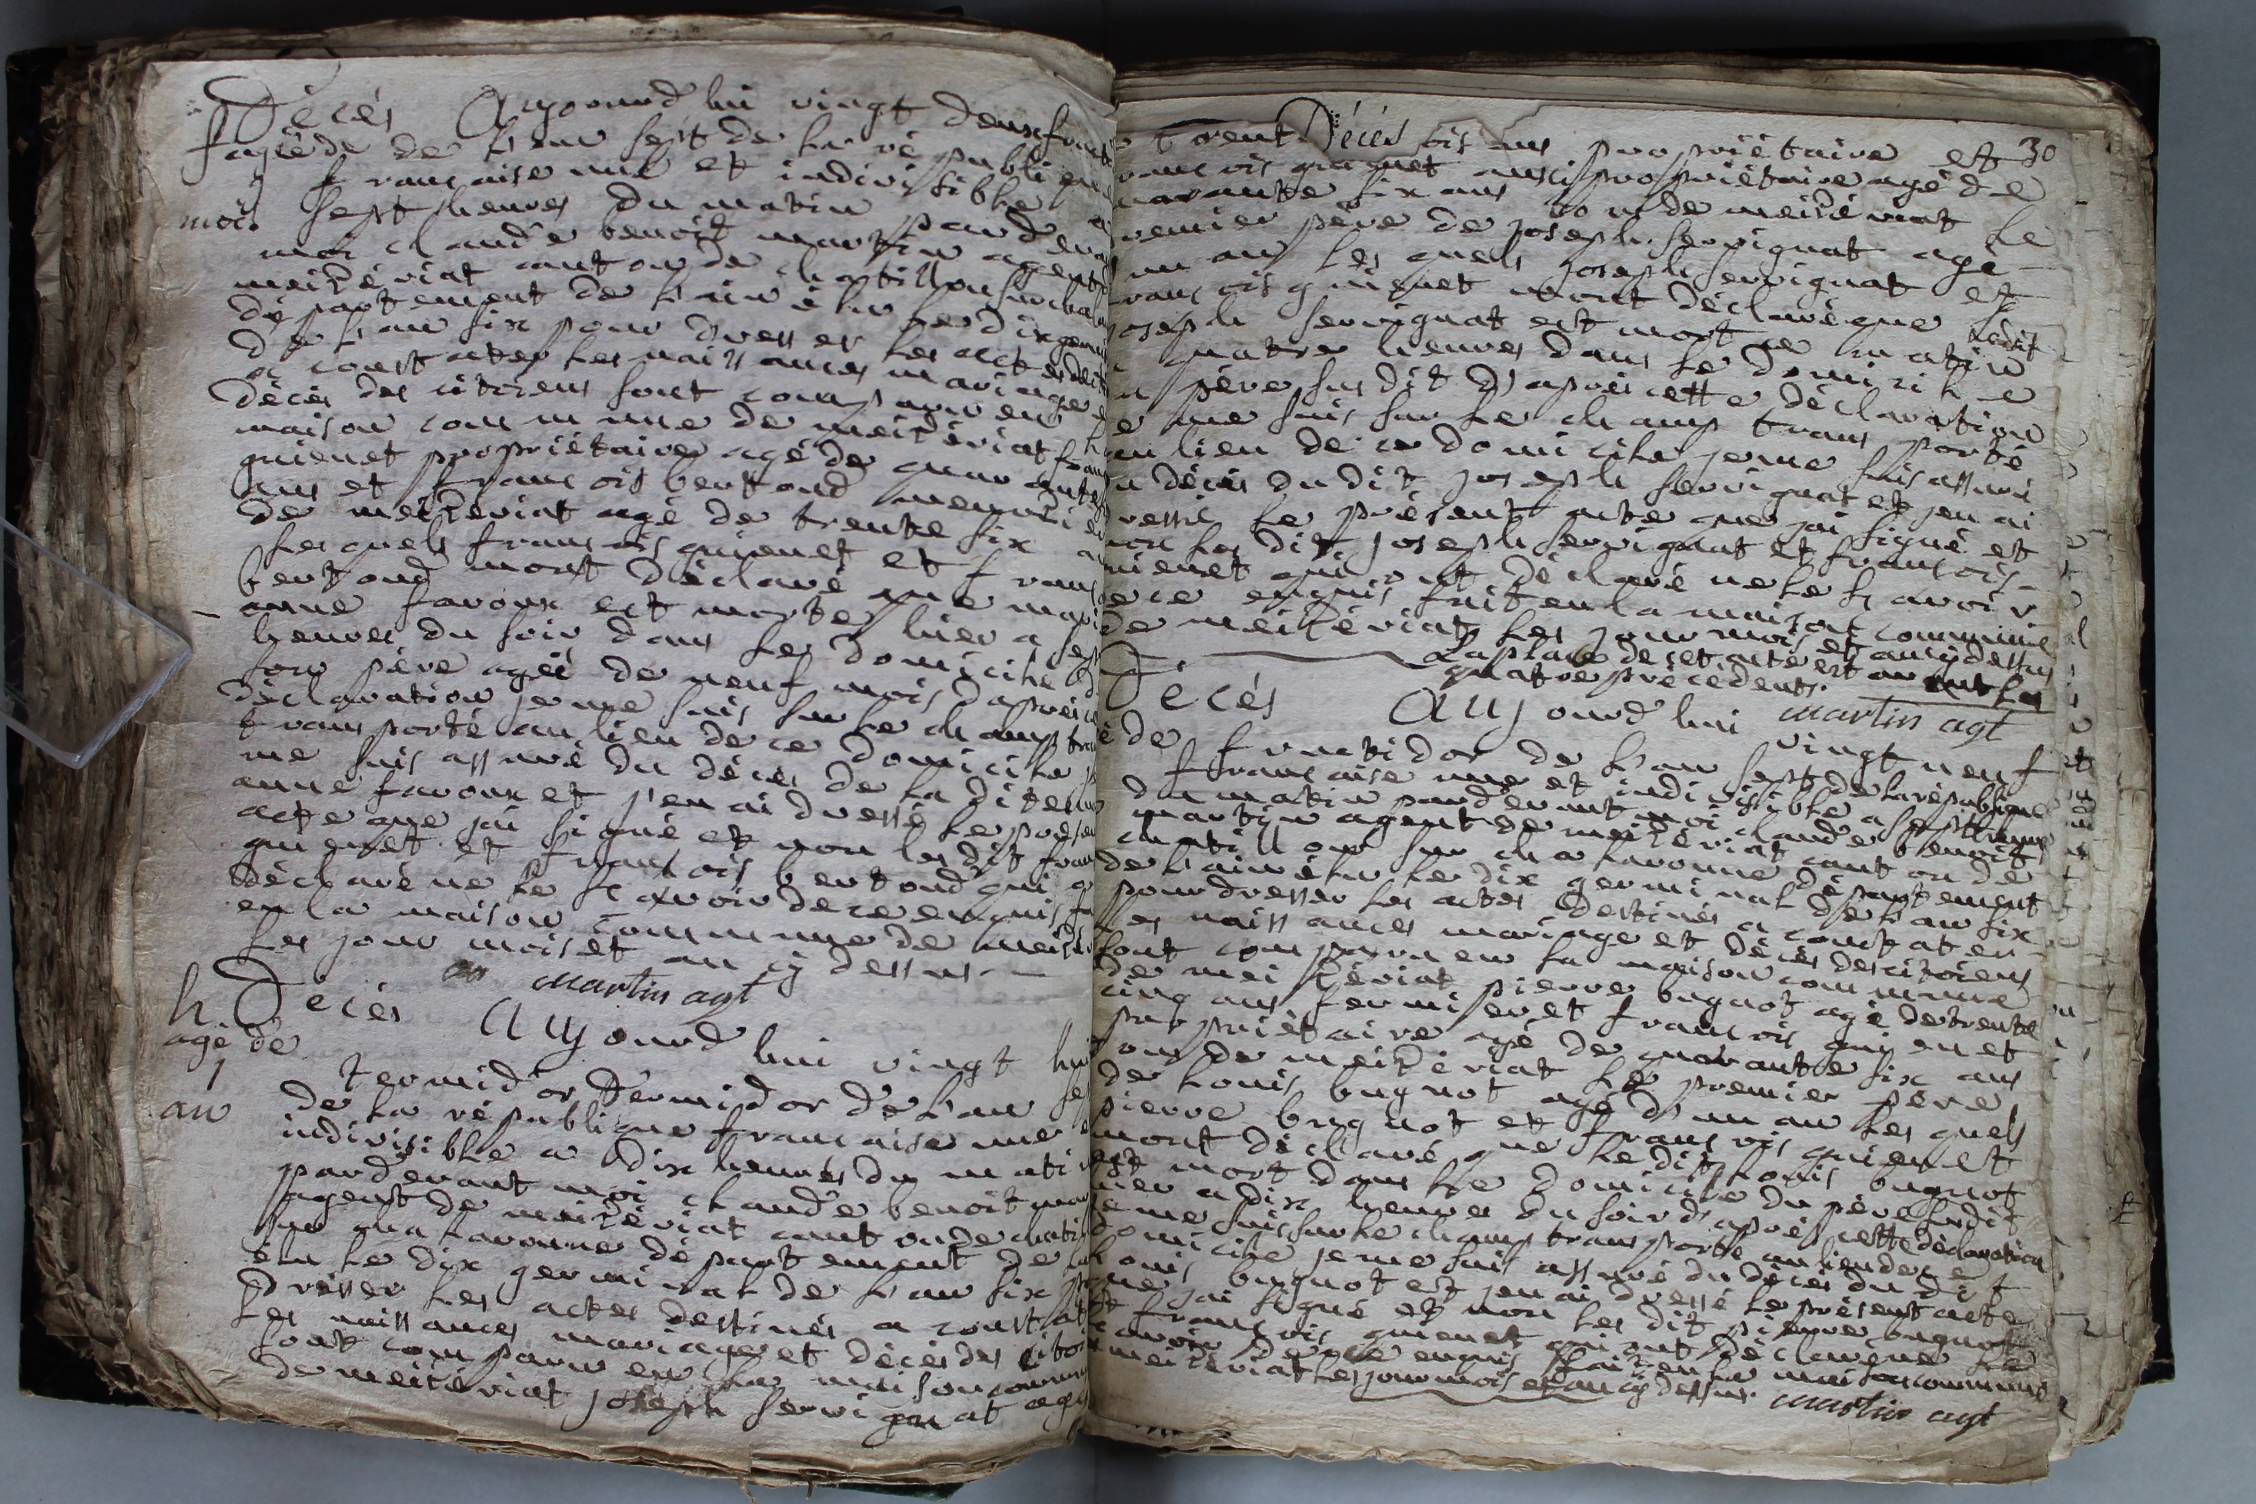 Décès Aujourd hui vingt deux fruct
f agée de de l'an sept de la république
9 francaise une et indivisible a
mois sept heures du matin pardevant
moi claude benoit martin agent
meizériat canton de chatillon sur chala
département de l'ain élu le dix germi
de l'an six pour dresser les actes desti
a constater les naissances mariage e
décès des citoyens sont comparu en
maison commune de meizériat fran
guienet propriétaire agé de quarante
ans et francois bertoud menui
de meizériat agé de trente six
lesquels francois guienet et franc
bertoud mont déclaré que mari
anne favoux est morte hier a sep
heures du soir dans le domicile d
son père agée de neuf mois d'après ce
déclaration je me suis sur le champ tra
transporté au lieu de ce domicile j
me suis assuré du décès de la dite
anne favoux et j'en ai dressé le présen
acte que jai signé et non les dit fran
guienet et francois bertoud qui o
déclaré ne le scavoir de ce enquis f
en la maison commune de meizé
les jour mois et an cy dessus
martin agt
h Décès Aujourd hui vingt hui
agé de termidor termidor de l'an sep
1 de la république francaise une e
an indivisible a dix heures du matin
pardevant moi claude benoit mar
agent de meizériat canton de chati
sur chalaronne département de
élu le dix germinal de l'an six p
dresser les actes destinés a constat
les naissances mariage et décès des citoi
sont comparu en la maison commun
de meizériat joseph servignat agé
30
Décès
trent ois ans propriétaire et
rancois guienet aussi propriétaire agé de
uarante six ans tous de meizériat le
remier père de joseph servignat agé
un an lesquels joseph servignat et
rancois guienet mont déclaré que ledit
joseph servignat est mort ce matin
quatre heures dans le domicile
u père susdit d'après cette déclaration
e me suis sur le champ transporté
au lieu de ce domicile je me suis assuré
u décès du dit joseph servignat et jen ai
ressé le présent acte que jai signé et
non les dit joseph servignat et francois
uienet qui ont déclaré ne le scavoir
de ce enquis fait en la maison commune
de meizériat les jour mois et an cy dessus
La place de cet acte est avant les
quatre précédents.
martin agt
Décès Aujourd hui vingt neuf
é de fructidor de l'an sept de la république
francaise une et indivisible a sept heures
du matin pardevant moi claude benoit
martin agent de meizériat canton de
chatillon sur chalaronne département
de l'ain élu le dix germinal de l'an six
pour dresser les actes destinés a constater
les naissances mariage et décès des citoiens
sont comparu en la maison commune
de meizériat pierre bugnot agé de trente
cinq ans fermier et francois guienet
propriétaire agé de quarante six ans
ous de meizériat le premier père
de louis bugnot agé d'un an les quels
pierre bugnot et francois guienet
mont déclaré que le dit louis bugnot
est mort dans le domicile du père susdit
hier a dix heure du soir d'après cette déclaration
je me suis sur le champ transporté au lieu de ce
domicile je me suis assuré du décès du dit
louis bugnot et jen ai dressé le présent acte
que jai signé et non les dit pierre bugnot
et francois guienet qui ont déclaré ne le
scavoir de ce enquis fait en la maison commune
meizériat les jour mois et an cy dessus. martin agt